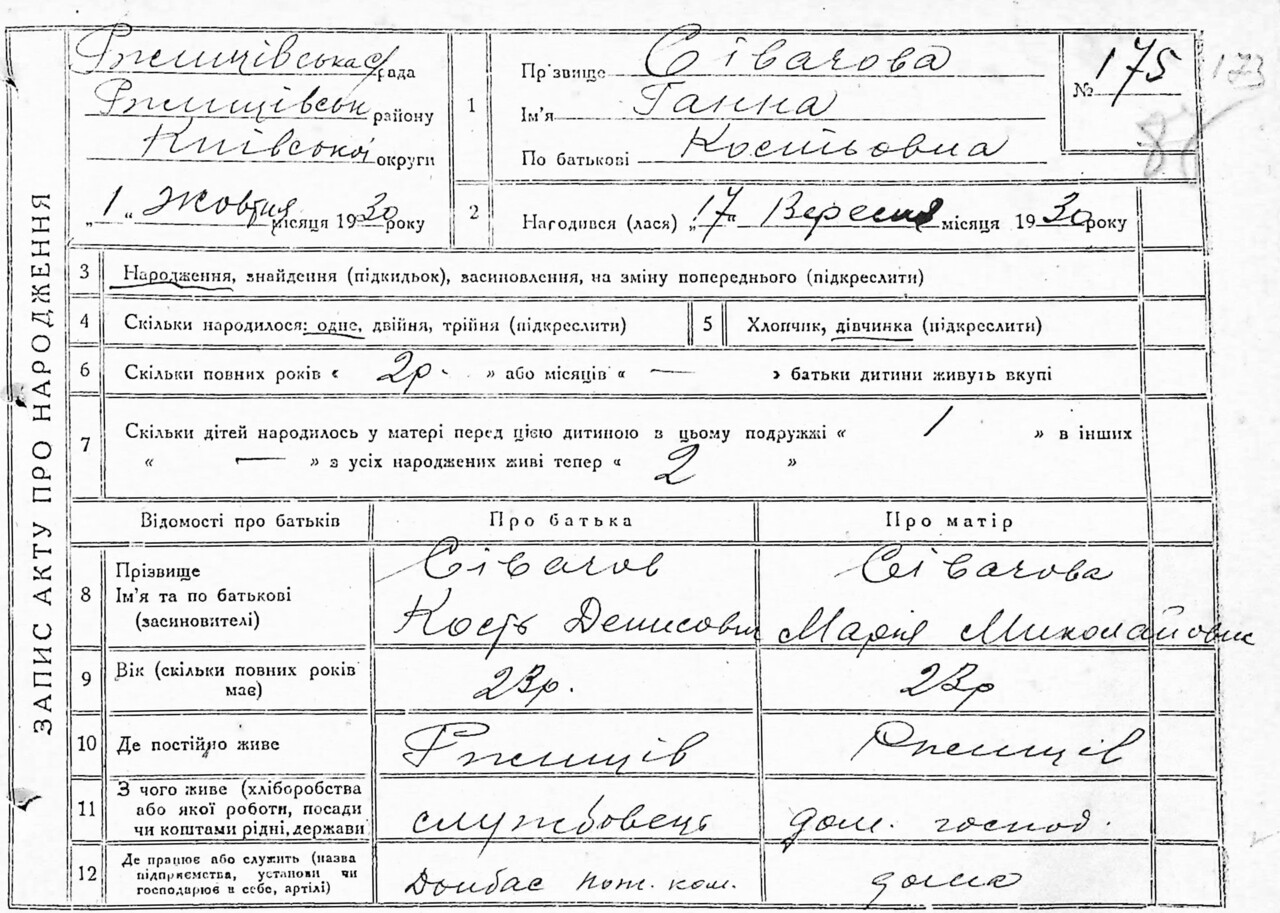 ЗАПИС АКТУ ПРО НАРОДЖЕННЯ
Ржищівська с/рада
Ржищівськ району
Київської округи
„1“ Жовтня місяця 1930 року
1
Пр'звище Сівачова
Ім'я Ганна
По батькові Костьовна
№ 175
173
2 Нагодився (лася) „17“ Вересня місяця 1930 року
3 Народження, знайдення (підкидьок), засиновлення, на зміну попереднього (підкреслити)
4 Скільки народилося: одне, двійня, трійня (підкреслити)
5 Хлопчик, дівчинка (підкреслити)
6 Скільки повних років « 2р. » або місяців « — » батьки дитини живуть вкупі
7 Скільки дітей народилось у матері перед цією дитиною в цьому подружжі « 1 » в інших
« — » з усіх народжених живі тепер « 2 »
Відомості про батьків
Про батька
Про матір
8 Прізвище
Ім'я та по батькові
(засиновителі)
Сівачов
Кость Денисович
Сівачова
Марія Миколайовна
9 Вік (скільки повних років
має)
23р.
23р
10 Де постійно живе
Ржищів
Ржищів
11 З чого живе (хліборобства
або якої роботи, посади
чи коштами рідні, держави
службовець
дом. господ.
12 Де працює або служить (назва
підприємства, установи чи
господарює в себе, артілі)
Донбас пож. ком.
дома